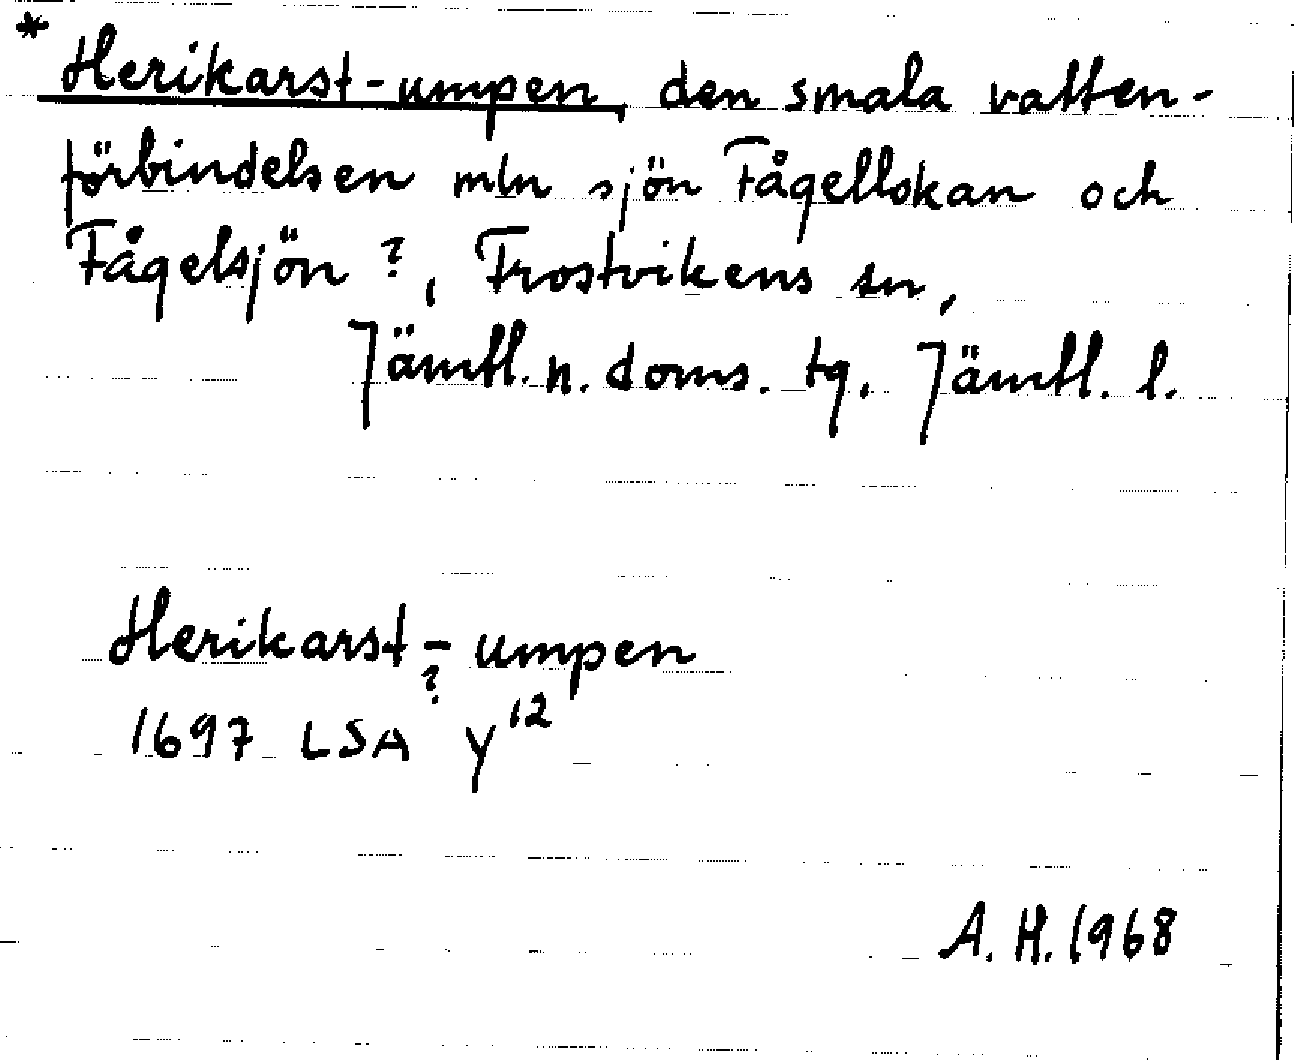 * Herikarst-umpen, den smala vatten-
förbindelsen mln sjön Fågellokan och
Fågelsjön ?, Frostvikens sn,
Jämtl. n. doms. tg. Jämtl. l.
Herikarst-umpen
?
1697 LSA Y¹²
A. H. 1968